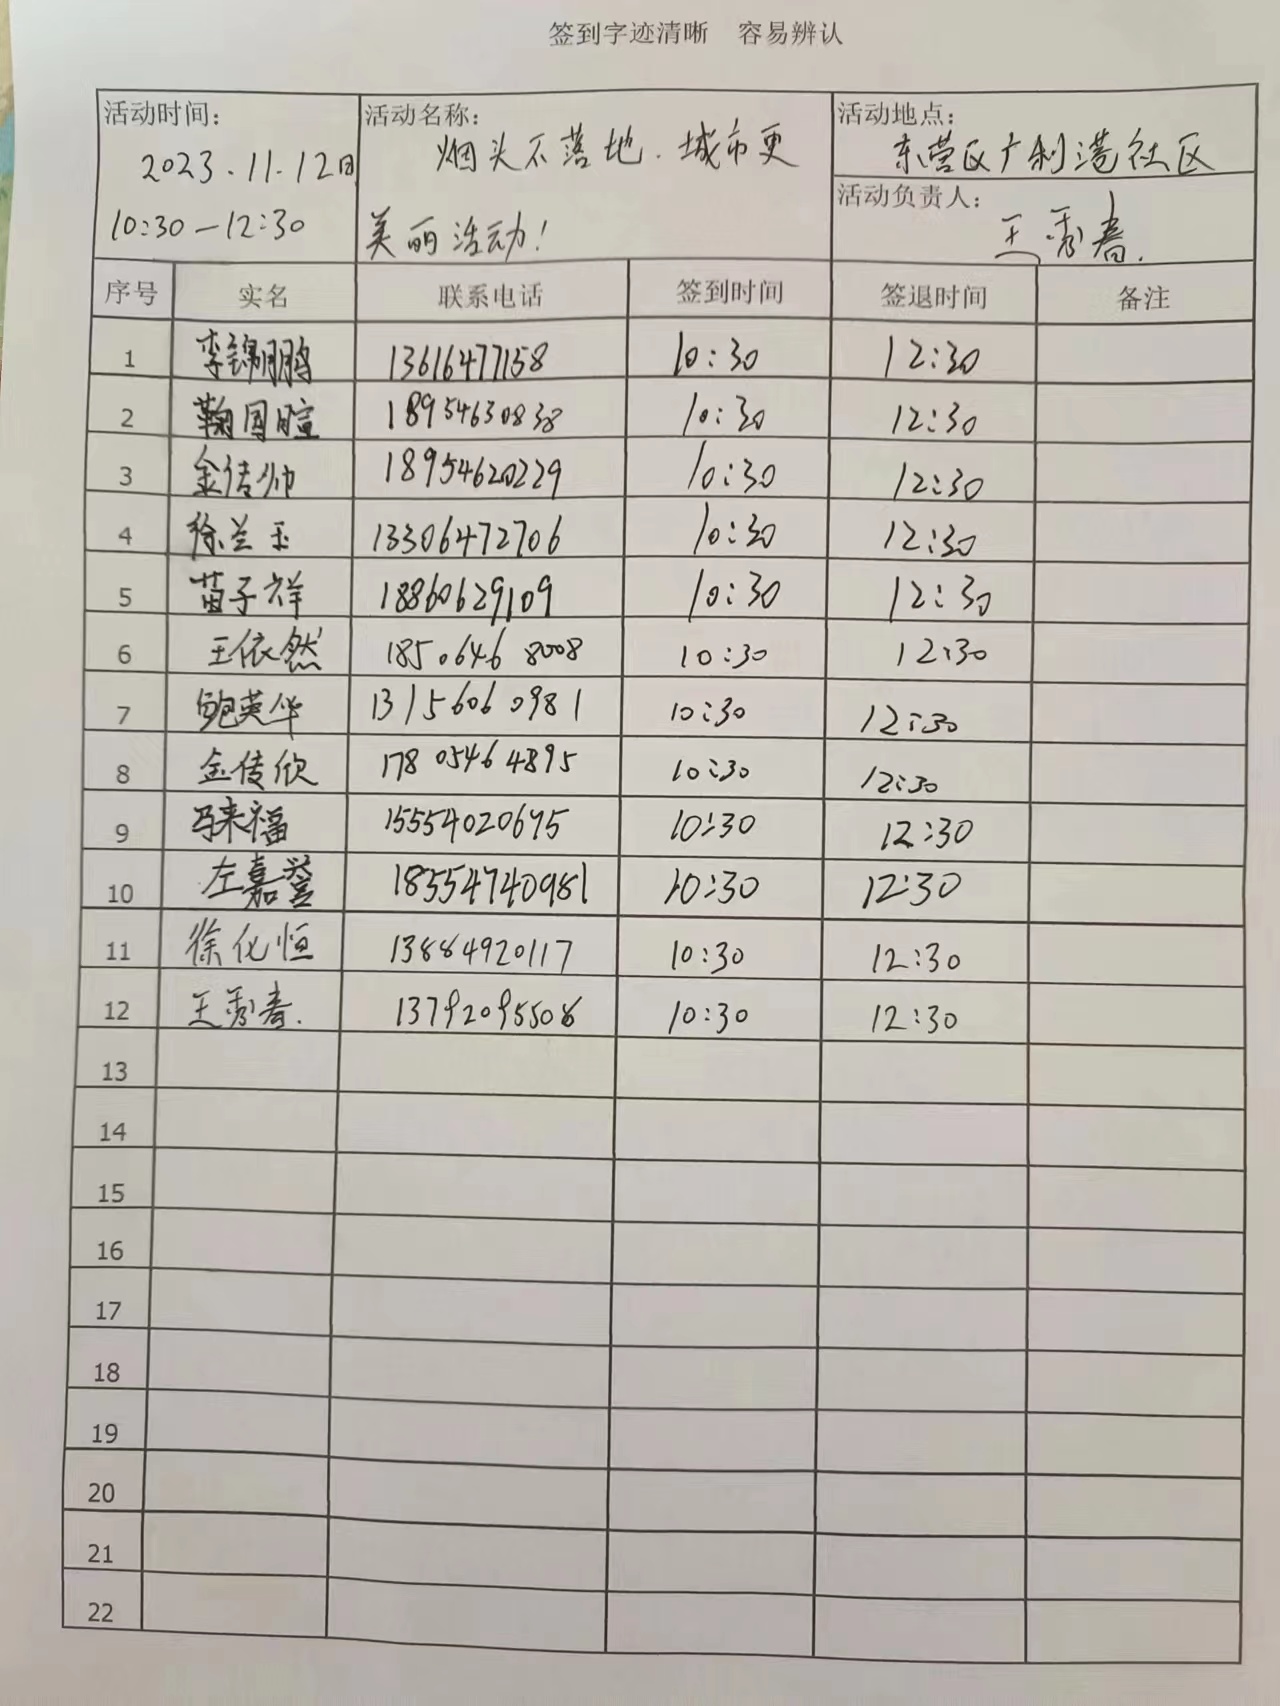 签到字迹清晰 容易辨认
活动时间：
2023.11.12日
10:30—12:30
活动名称：
烟头不落地.城市更
美丽活动！
活动地点：
东营区广利港社区
活动负责人：
王秀春.
序号 实名 联系电话 签到时间 签退时间 备注
1 李锦鹏 13616477158 10:30 12:30
2 鞠国暄 18954630838 10:30 12:30
3 金传帅 18954620229 10:30 12:30
4 徐兰玉 13306472706 10:30 12:30
5 苗子祥 18860629109 10:30 12:30
6 王依然 18506468008 10:30 12:30
7 鲍英华 13156060981 10:30 12:30
8 金传欣 17805464895 10:30 12:30
9 冯来福 15554020695 10:30 12:30
10 左嘉誉 18554740981 10:30 12:30
11 徐化恒 13884920117 10:30 12:30
12 王秀春. 13792095508 10:30 12:30
13
14
15
16
17
18
19
20
21
22